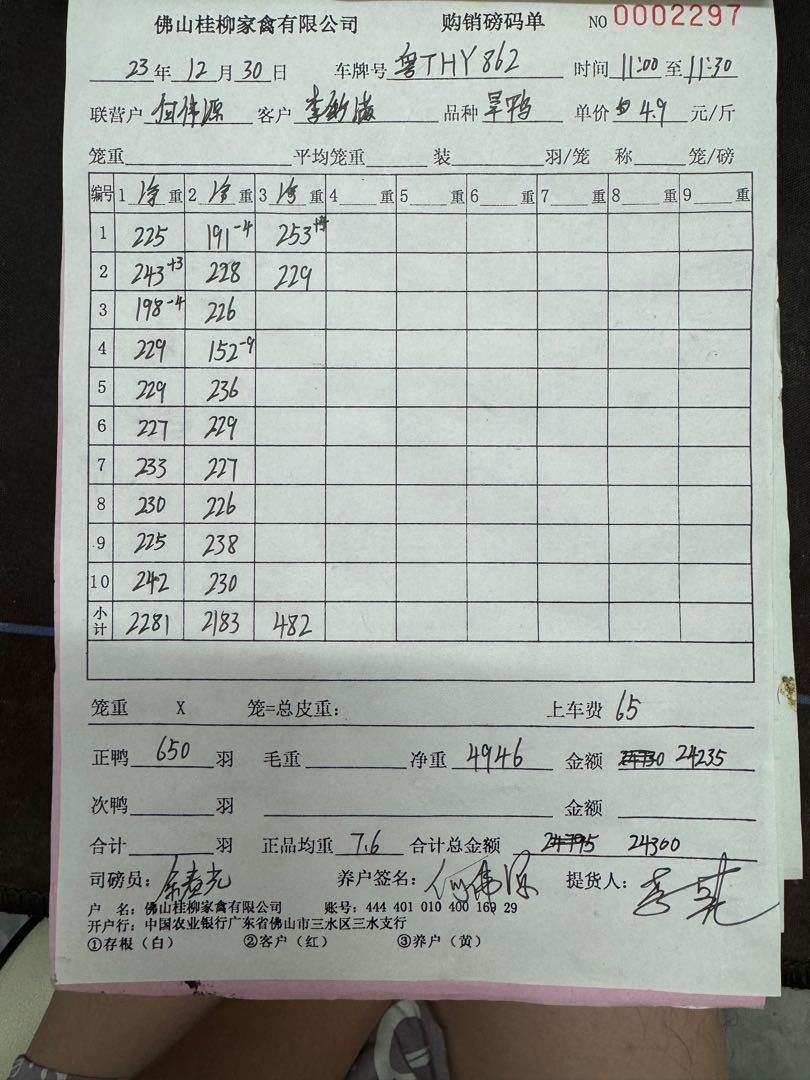 佛山桂柳家禽有限公司 购销磅码单 NO 0002297
23年12月30日 车牌号 粤THY862 时间 11:00 至 11:30
联营户 何伟源 客户 李 品种 旱鸭 单价 4.9 元/斤
笼重 平均笼重 装 羽/笼 称 笼/磅
编号 1 净 重 2 净 重 3 净 重 4 重 5 重 6 重 7 重 8 重 9 重
1 225 191-4 253
2 243+3 228 229
3 198-4 226
4 229 152-9
5 229 236
6 227 229
7 233 227
8 230 226
9 225 238
10 242 230
小计 2281 2183 482
笼重 X 笼=总皮重： 上车费 65
正鸭 650 羽 毛重 净重 4946 金额 24235
次鸭 羽 金额
合计 羽 正品均重 7.6 合计总金额 24300
司磅员： 养户签名：何伟源 提货人：
户 名：佛山桂柳家禽有限公司 账号：444 401 010 400 169 29
开户行：中国农业银行广东省佛山市三水区三水支行
①存根（白） ②客户（红） ③养户（黄）